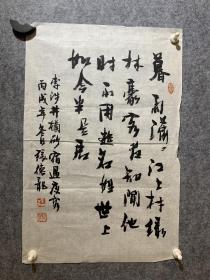 暮雨瀟瀟江上村绿
林豪客夜知闻他
时不用逃名姓世上
如今半是君
李涉井栏砂宿遇夜客
丙戌年冬月張德龍